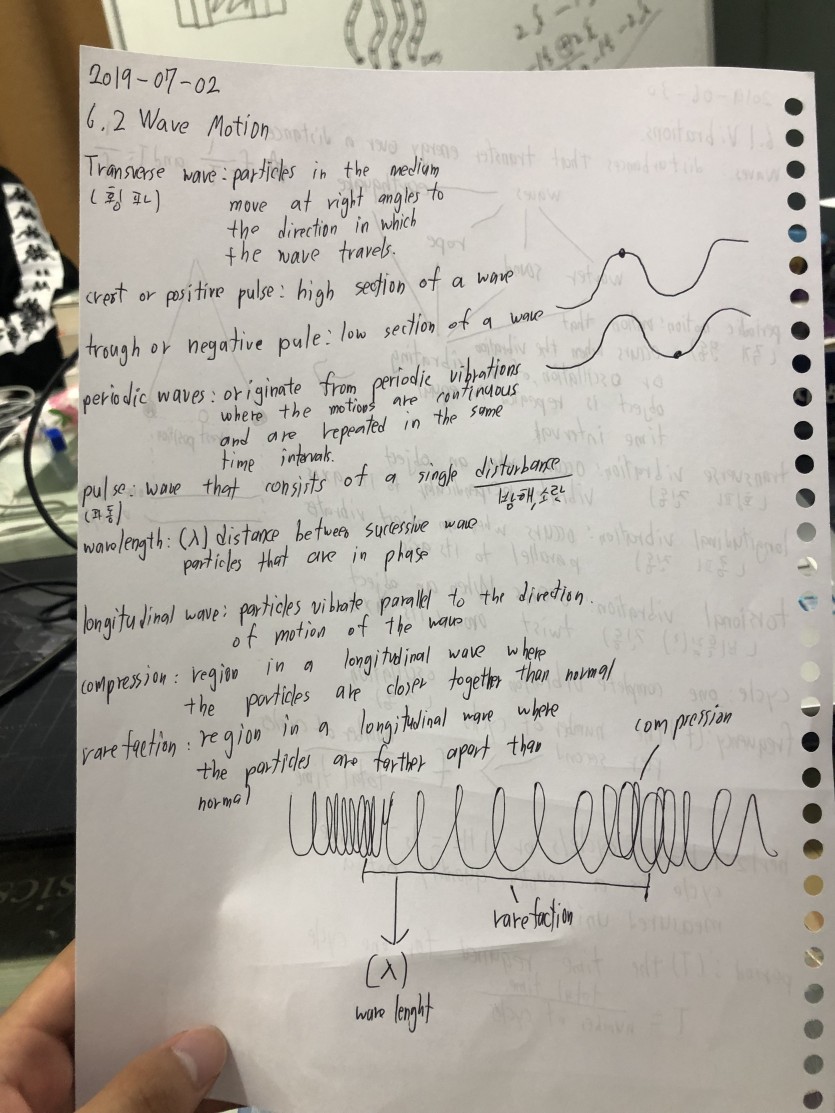 2019-07-02
6.2 Wave Motion
Transverse wave: particles in the medium
(횡파) move at right angles to
the direction in which
the wave travels.
crest or positive pulse: high section of a wave
trough or negative pule: low section of a wave
periodic waves: originate from periodic vibrations
where the motions are continuous
and are repeated in the same
time intervals.
pulse: wave that consists of a single disturbance
(파동) 방해, 소란
wavelength: (λ) distance between successive wave
particles that are in phase
longitudinal wave: particles vibrate parallel to the direction.
of motion of the wave
compression: region in a longitudinal wave where
the particles are closer together than normal
rarefaction: region in a longitudinal wave where
the particles are farther apart than
normal
compression
rarefaction
(λ)
wave lenght